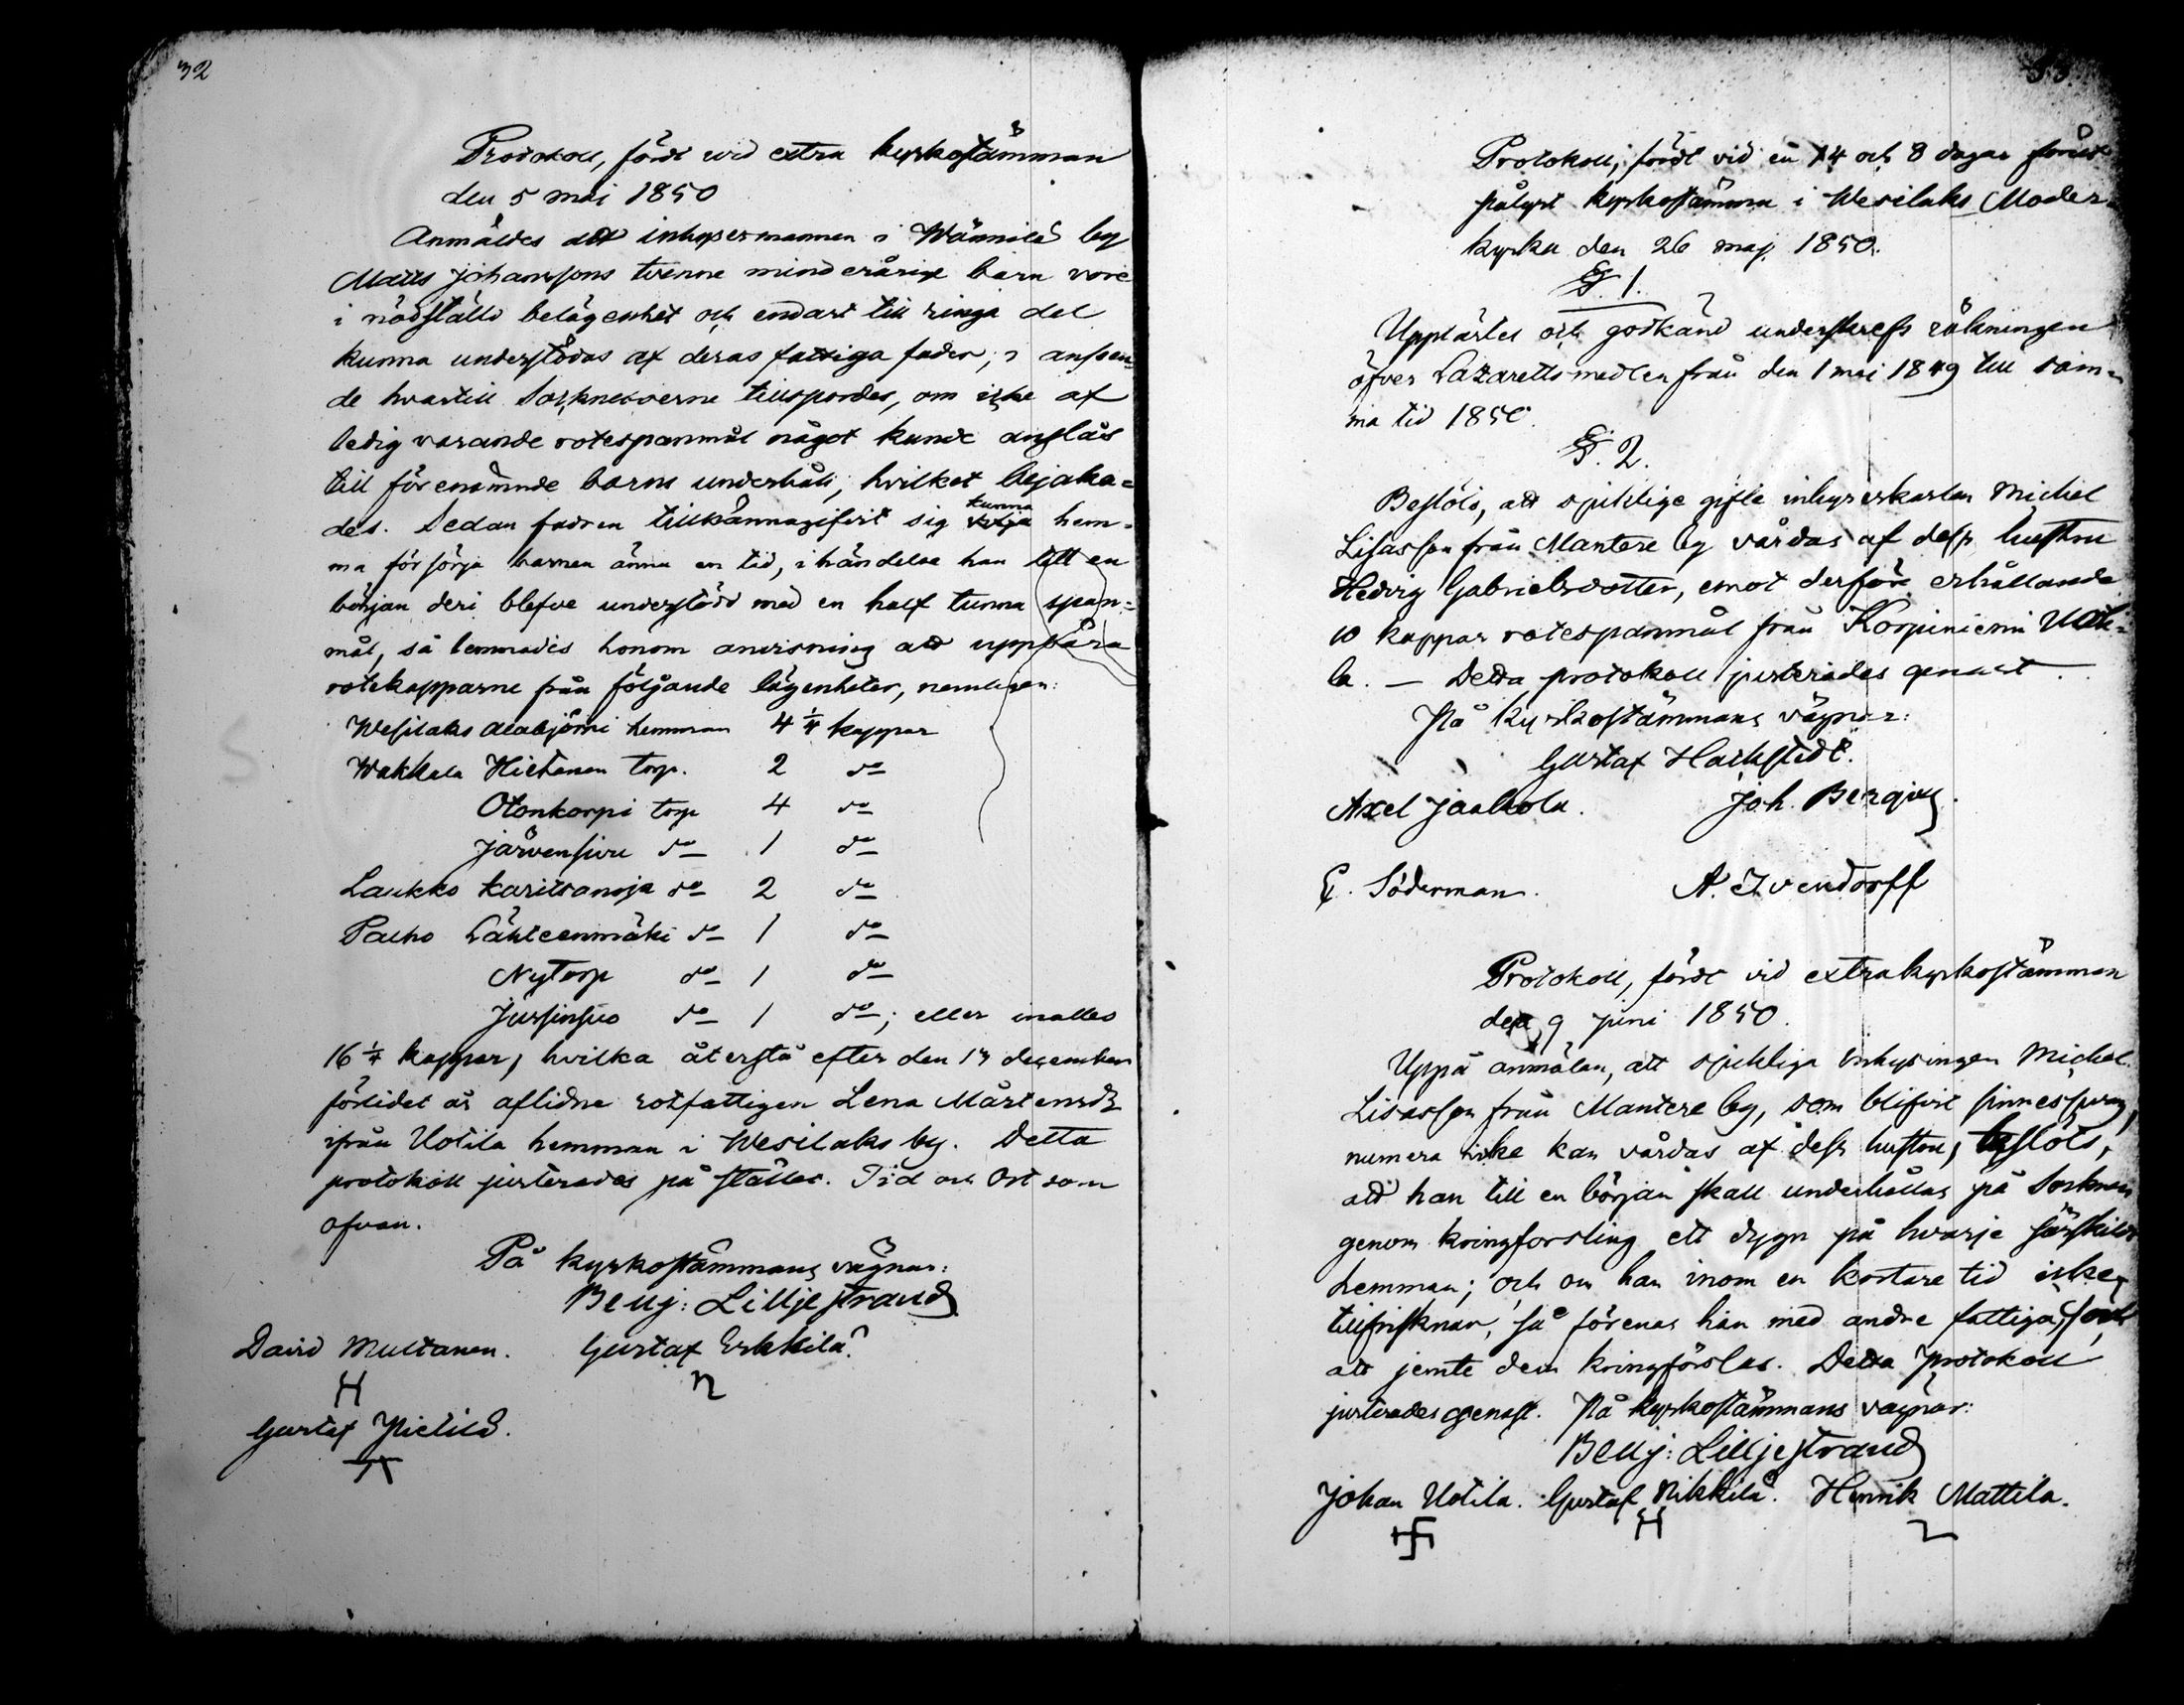 32
Protokoll, fördt wid extra kyrkostämman
den 5 maj 1850
Anmäldes att inhysesmannen i Wännilä by
Matts Johanssons tvenne minderårige barn vore
i nödställd belägenhet och endast till ringa del
kunna understödas af deras fattiga fader; i anseen-
de hvartill Socknboerne tillspordes, om icke af
ledig varande rotespanmål något kunde anslås
till förenämnde barns underhåll, hvilket bejaka=
des. Sedan fadren tillkännagifvit sig kunna hem=
ma försörja barnen ännu en tid, i händelse han till en
början deri blefve understödd med en half tunna span=
mål, så lemnades honom anvisning att uppbära
rotekapparne från följande lägenheter, nemligen:
Wesilaks Alabjörni hemman 4 1/4 kappar
Wakkala Hietanen torp. 2 do
Otonkorpi torp 4 do
Järvensivu do 1 do
Laukko Karitsanoja do 2 do
Palho Lähteenmäki do 1 do
Nytorp do 1 do
Jussinsuo do 1 do; eller inalles
16 1/4 kappar, hvilka återstå efter den 13 december
förlidet år aflidne rotfattigen Lena Mårtensdr
ifrån Uotila hemman i Wesilaks by. Detta
protokoll justerades på stället. Tid och Ort som
ofvan.
På kyrkostämmans vägnar:
Benj: Lilljestrand
David Multanen. Gustaf Erkkilä
Gustaf Pietilä.
33
Protokoll, fördt vid en 14 och 8 dagar förut
pålyst kyrkostämma i Wesilaks Moder-
kyrka den 26 maj 1850.
§. 1.
Upplästes och godkänd underskrefs räkningen
öfver Lazarettsmedlen från den 1 maj 1849 till sam-
ma tid 1850.
§. 2.
Beslöts, att sjuklige gifte inhyseskarlen Michel
Lisasson från Mantere by vårdas af dess hustru
Hedvig Gabrielsdotter, emot derföre erhållande
10 kappar rotespanmål från Korpiniemi Uoti-
la. — Detta protokoll justerades genast.
På kyrkostämmans vägnar:
Gustaf Hackstedt.
Axel Jaakola. Joh. Bergroth.
G. Söderman. A. Ivendorff
Protokoll, fördt vid extra kyrkostämman
den 9 juni 1850.
Uppå anmälan, att sjukliga Inhysingen Michel
Lisasson från Mantere by, som blifvit sinnessvag,
numera icke kan vårdas af dess hustru, beslöts,
att han till en början skall underhållas på Socknen
genom kringforsling ett dygn på hvarje särskildt
hemman; och om han inom en kortare tid icke
tillfrisknar, så förenas han med andre fattiga, för
att jemte dem kringförslas. Detta protokoll
justerades genast. På kyrkostämmans vägnar:
Benj: Lilljestrand
Johan Uotila. Gustaf Nikkilä. Henrik Mattila.